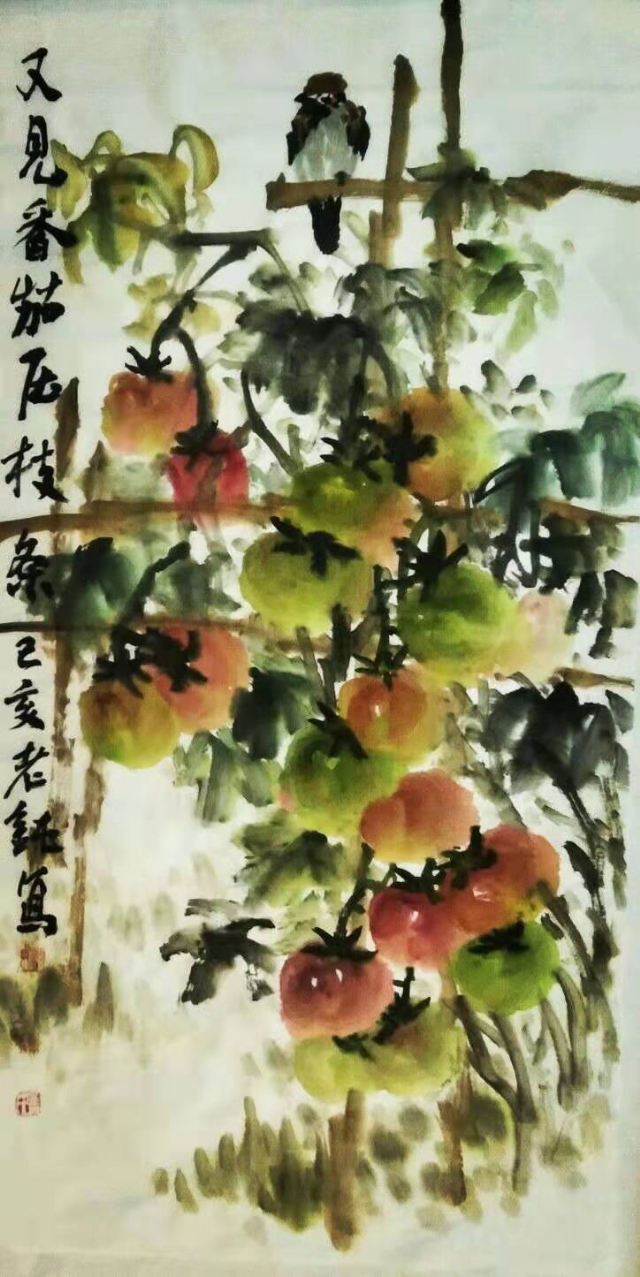 又见番茄压枝条己亥老铁写